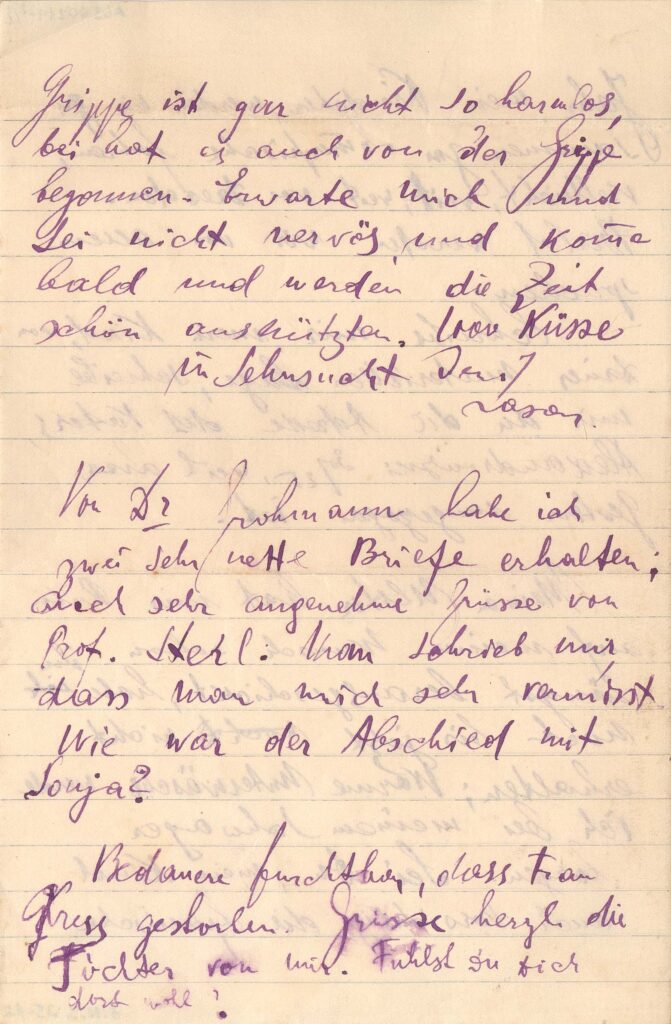 Grippe ist gar nicht so harmlos,
bei hat es auch von der Grippe
begonnen. Erwarte mich und
sei nicht nervös, und kome
bald und werden die Zeit
schön ausnützten. 1000 Küsse
in Sehnsucht Dein
Von Dr Grohmann habe ich
zwei sehr nette Briefe erhalten;
auch sehr angenehme Grüsse von
Prof. Sterl. Man schrieb mir,
dass man mich sehr vermisst.
Wie war der Abschied mit
Sonja?
Bedauere furchtbar, dass Frau
gestorben. Grüsse herzl. die
Töchter von mir. Fühlst Du Dich
dort wohl?